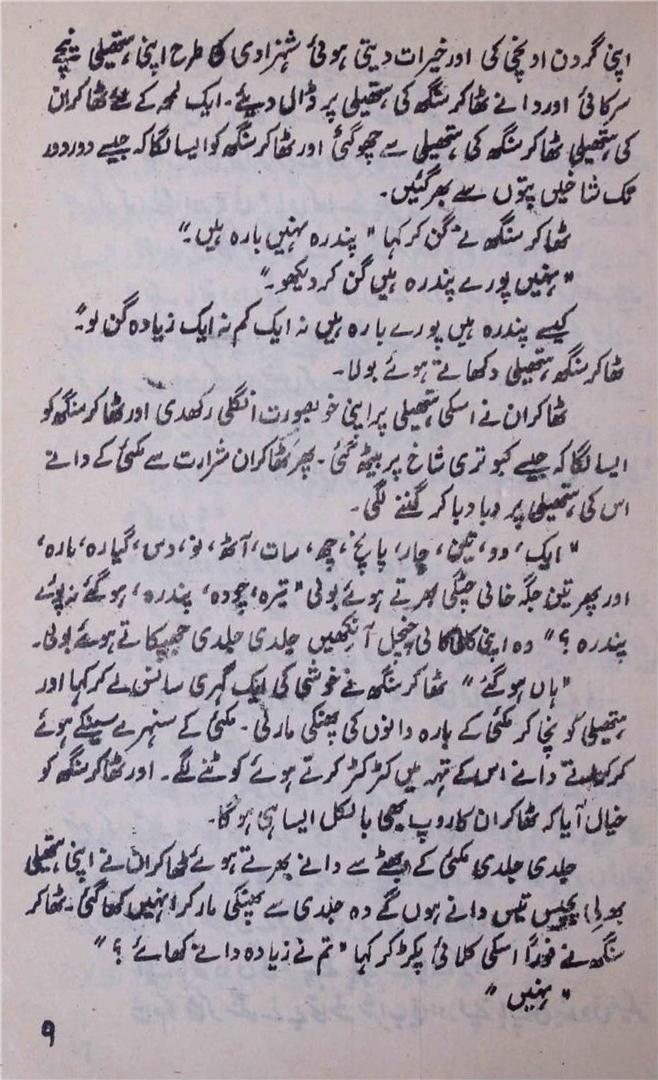 اپنی گردن اونچی کی اور خیرات دیتی ہوئی شہزادی کی طرح اپنی ہتھیلی نیچے
سرکائی اور دانے ٹھاکر سنگھ کی ہتھیلی پر ڈال دیئے۔ ایک لمحہ کے لئے ٹھاکران
کی ہتھیلی ٹھاکر سنگھ کی ہتھیلی سے چھو گئی اور ٹھاکر سنگھ کو ایسا لگا کہ جیسے دور دور
تک شاخیں پتوں سے بھر گئیں۔
ٹھاکر سنگھ نے گن کر کہا "پندرہ نہیں بارہ ہیں۔"
"نہیں پورے پندرہ ہیں گن کر دیکھو۔"
کیسے پندرہ ہیں پورے بارہ ہیں نہ ایک کم نہ ایک زیادہ گن لو۔"
ٹھاکر سنگھ ہتھیلی دکھاتے ہوئے بولا۔
ٹھاکران نے اسکی ہتھیلی پر اپنی خوبصورت انگلی رکھدی اور ٹھاکر سنگھ کو
ایسا لگا کہ جیسے کبوتری شاخ پر بیٹھ گئی۔ پھر ٹھاکران شرارت سے مکئی کے دانے
اس کی ہتھیلی پر دبا دبا کر گننے لگی۔
"ایک، دو، تین، چار، پانچ، چھ، سات، آٹھ، نو، دس، گیارہ، بارہ،
اور پھر تین جگہ خالی چٹکی بھرتے ہوئے بولی "تیرہ، چودہ، پندرہ، ہو گئے نہ پورے
پندرہ؟" وہ اپنی کالی کالی چنچل آنکھیں جلدی جلدی جھپکاتے ہوئے بولی۔
"ہاں ہو گئے" ٹھاکر سنگھ نے خوشی کی ایک گہری سانس لے کر کہا اور
ہتھیلی کو نچا کر مکئی کے بارہ دانوں کی پھنکی ماری۔ مکئی کے سنہرے سینکے ہوئے
دانے اس کے تہہ میں کڑ کڑ کرتے ہوئے کوٹنے لگے۔ اور ٹھاکر سنگھ کو
خیال آیا کہ ٹھاکران کا روپ بھی بالکل ایسا ہی ہو گا۔
جلدی جلدی مکئی کے بھٹے سے دانے بھرتے ہوئے ٹھاکران نے اپنی ہتھیلی
بھر لی، پچیس تیس دانے ہوں گے وہ جلدی سے پھنکی مار کر انہیں کھا گئی۔ ٹھاکر
سنگھ نے فوراً اسکی کلائی پکڑ کر کہا "تم نے زیادہ دانے کھائے؟"
"نہیں"
۹